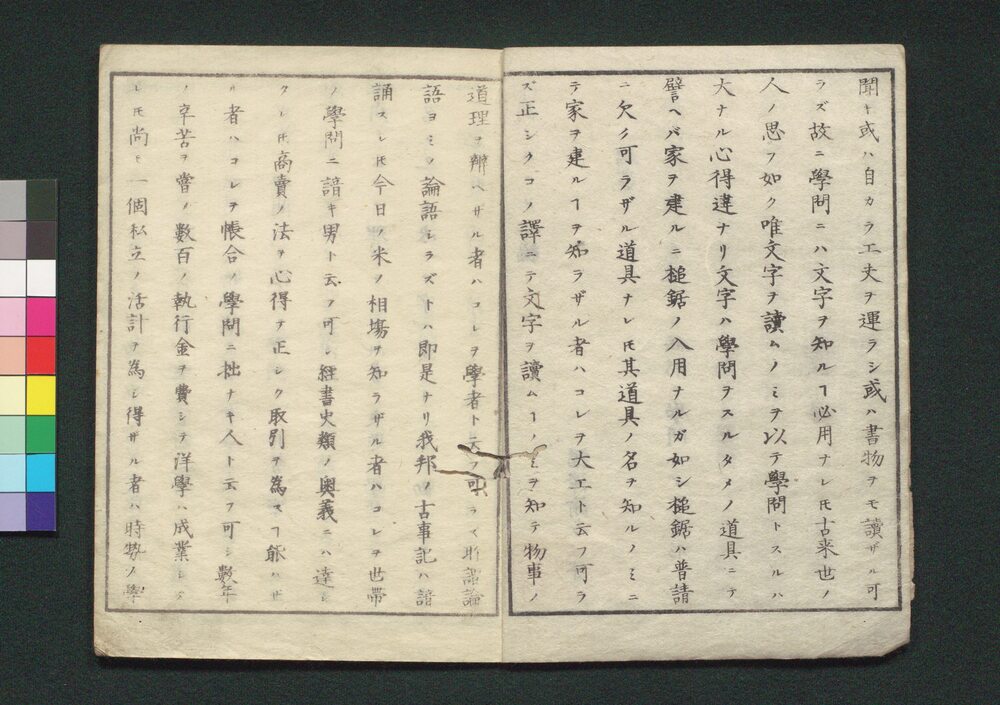 聞キ或ハ自カラ工丈ヲ運ラシ或ハ書物ヲモ讀ザル可
ラズ故ニ學問ニハ文字ヲ知ルヿ必用ナレ𪜈古来世ノ
人ノ思フ如ク唯文字ヲ讀ムノミヲ以テ學問トスルハ
大ナル心得違ナリ文字ハ學問ヲスルタメノ道具ニテ
譬ヘバ家ヲ建ルニ槌鋸ノ入用ナルガ如シ槌鋸ハ普請
ニ欠ク可ラザル道具ナレ𪜈其道具ノ名ヲ知ルノミニ
テ家ヲ建ルヿヲ知ラザル者ハコレヲ大工ト云フ可ラ
ズ正シクコノ譯ニテ文字ヲ讀ムヿノミヲ知テ物事ノ
道理ヲ辨ヘザル者ハコレヲ學者ト云フ可ラズ所謂論
語ヨミノ論語シラズトハ即是ナリ我邦ノ古事記ハ諳
誦スレ𪜈今日ノ米ノ相塲ヲ知ラザル者ハコレヲ世帯
ノ學問ニ諳キ男ト云フ可シ經書史類ノ奥義ニハ達シ
タレ𪜈商賣ノ法ヲ心得テ正シク取引ヲ為スヿ能ハザ
ル者ハコレヲ帳合ノ學問ニ拙ナキ人ト云フ可シ數年
ノ辛苦ヲ嘗メ數百ノ執行金ヲ費シテ洋學ハ成業シタ
レ𪜈尚モ一個私立ノ活計ヲ為シ得ザル者ハ時勢ノ學